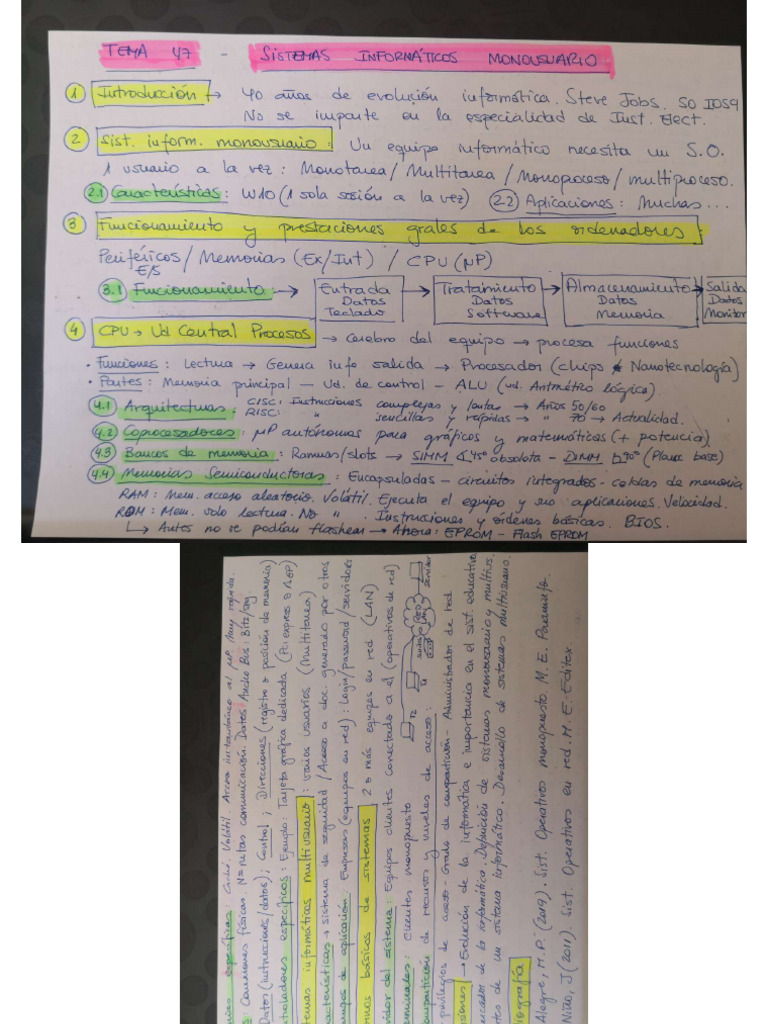 TEMA 47 - SISTEMAS INFORMÁTICOS MONOUSUARIO
① Introducción → 40 años de evolución informática. Steve Jobs. SO IOS9
No se imparte en la especialidad de Inst. Elect.
② Sist. inform. monousuario: Un equipo informático necesita un S.O.
1 usuario a la vez: Monotarea/Multitarea/Monoproceso/multiproceso.
2.1 Características: W10 (1 sola sesión a la vez) 2.2 Aplicaciones: Muchas...
③ Funcionamiento y prestaciones grales de los ordenadores:
Periféricos / Memorias (Ex/Int) / CPU (µP)
E/S
3.1 Funcionamiento: → Entrada Datos Teclado → Tratamiento Datos Software → Almacenamiento Datos Memoria → Salida Datos Monitor
④ CPU → Ud Central Procesos → Cerebro del equipo → procesa funciones
· Funciones: Lectura → Genera info salida → Procesador (chips Nanotecnología)
· Partes: Memoria principal – Ud. de control – ALU (ud. Aritmético lógica).
4.1 Arquitecturas: CISC: Instrucciones complejas y lentas → Años 50/60
RISC: " sencillas y rápidas → " 70 → Actualidad.
4.2 Coprocesadores: µP autónomas para gráficos y matemáticas (+ potencia)
4.3 Bancos de memoria: Ranuras/slots → SIMM 45º obsoleta – DIMM 90º (Placa base)
4.4 Memorias Semiconductoras: Encapsuladas – circuitos integrados – celdas de memoria
RAM: Mem. acceso aleatorio. Volátil. Ejecuta el equipo y sus aplicaciones. Velocidad.
ROM: Mem. solo lectura. No " . Instrucciones y órdenes básicas. BIOS.
↳ Antes no se podían flashear → Ahora: EPROM – Flash EPROM
específicas: Caché. Volátil. Acceso instantáneo al µP. Muy rápida.
: Conexiones físicas. Nº rutas comunicación. Datos Ancho Bus: Bits/sg.
Datos (instrucciones/datos); Control; Direcciones (registro o posición de memoria)
troladores específicos: Ejemplo: Tarjeta gráfica dedicada (Pci express o AGP)
temas informáticos multiusuario: varios usuarios (Multitarea)
racterísticas → sistema de seguridad / Acceso a doc. generado por otros
mpos de aplicación: Empresas (equipos en red): Login/password/servidores
rnos básicos de sistemas: 2 o más equipos en red (LAN)
vidor del sistema: Equipos clientes conectado a él (operativos de red)
minales: Clientes monopuesto
T2
T1
servidor
mpartición de recursos y niveles de acceso:
privilegios de acceso – Grado de compartición – Administrador de red
siones → Evolución de la informática e importancia en el sist. educativo
de la informática. Definición de sistemas monousuario y multius.
tes de un sistema informático. Desarrollo de sistemas multiusuario.
liografía
Alegre, M.P. (2019). Sist. Operativos monopuesto M. E. Paraninfo.
Niño, J (2011). Sist. Operativos en red. M. E. Editex.